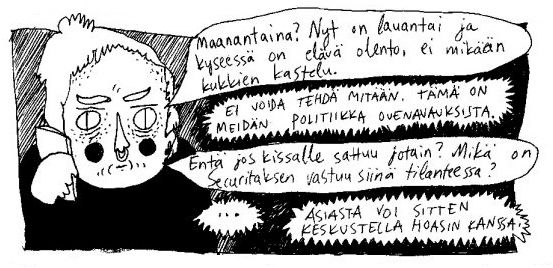 Maanantaina? Nyt on lauantai ja
kyseessä on elävä olento, ei mikään
kukkien kastelu.
EI VOIDA TEHDÄ MITÄÄN. TÄMÄ ON
MEIDÄN POLITIIKKA OVENAVAUKSISTA.
Entä jos kissalle sattuu jotain? Mikä on
Securitaksen vastuu siinä tilanteessa?
...
ASIASTA VOI SITTEN
KESKUSTELLA HOASIN KANSSA.